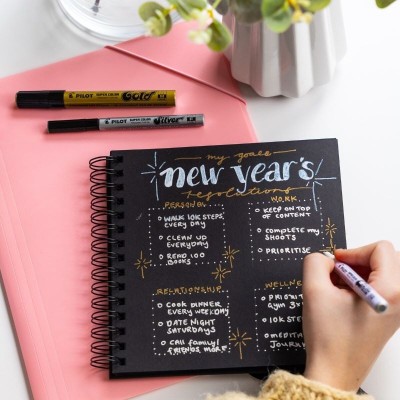 PILOT SUPER COLOR Gold
PILOT SUPER COLOR Silver
my goals
new year's
resolutions
PERSONAL
WALK 10K STEPS
EVERY DAY
CLEAN UP
EVERYDAY
READ 100
BOOKS
WORK
KEEP ON TOP
OF CONTENT
COMPLETE my
SHOOTS
PRIORITISE
RELATIONSHIP
COOK DINNER
EVERY WEEKDAY
DATE NIGHT
SATURDAYS
CALL FAMILY/
FRIENDS MORE
WELLNE
PRIORIT
GYM 3
10K STE
MEDITA
JOURN